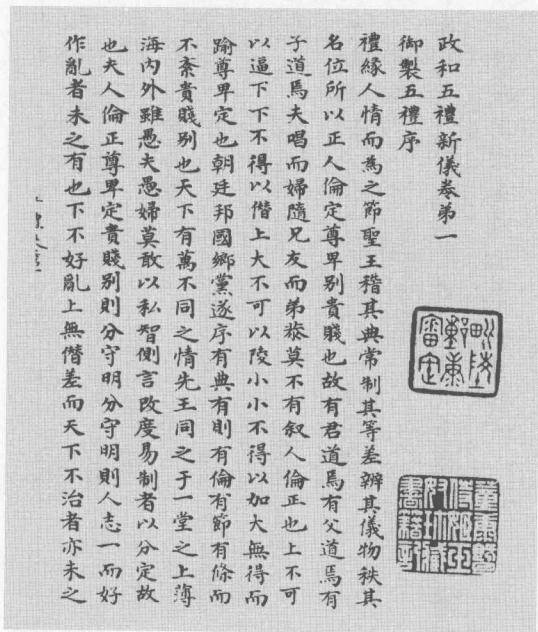 政和五禮新儀卷第一
御製五禮序
禮緣人情而為之節聖王稽其典常制其等差辨其儀物秩其
名位所以正人倫定尊卑別貴賤也故有君道焉有父道焉有
子道焉夫唱而婦隨兄友而弟恭莫不有叙人倫正也上不可
以逼下下不得以僭上大不可以陵小小不得以加大無得而
踰尊卑定也朝廷邦國鄉黨遂序有典有則有倫有節有條而
不紊貴賤別也天下有萬不同之情先王同之于一堂之上薄
海內外雖愚夫愚婦莫敢以私智側言改度易制者以分定故
也夫人倫正尊卑定貴賤別則分守明分守明則人志一而好
作亂者未之有也下不好亂上無僭差而天下不治者亦未之
毗陵
董康
審定